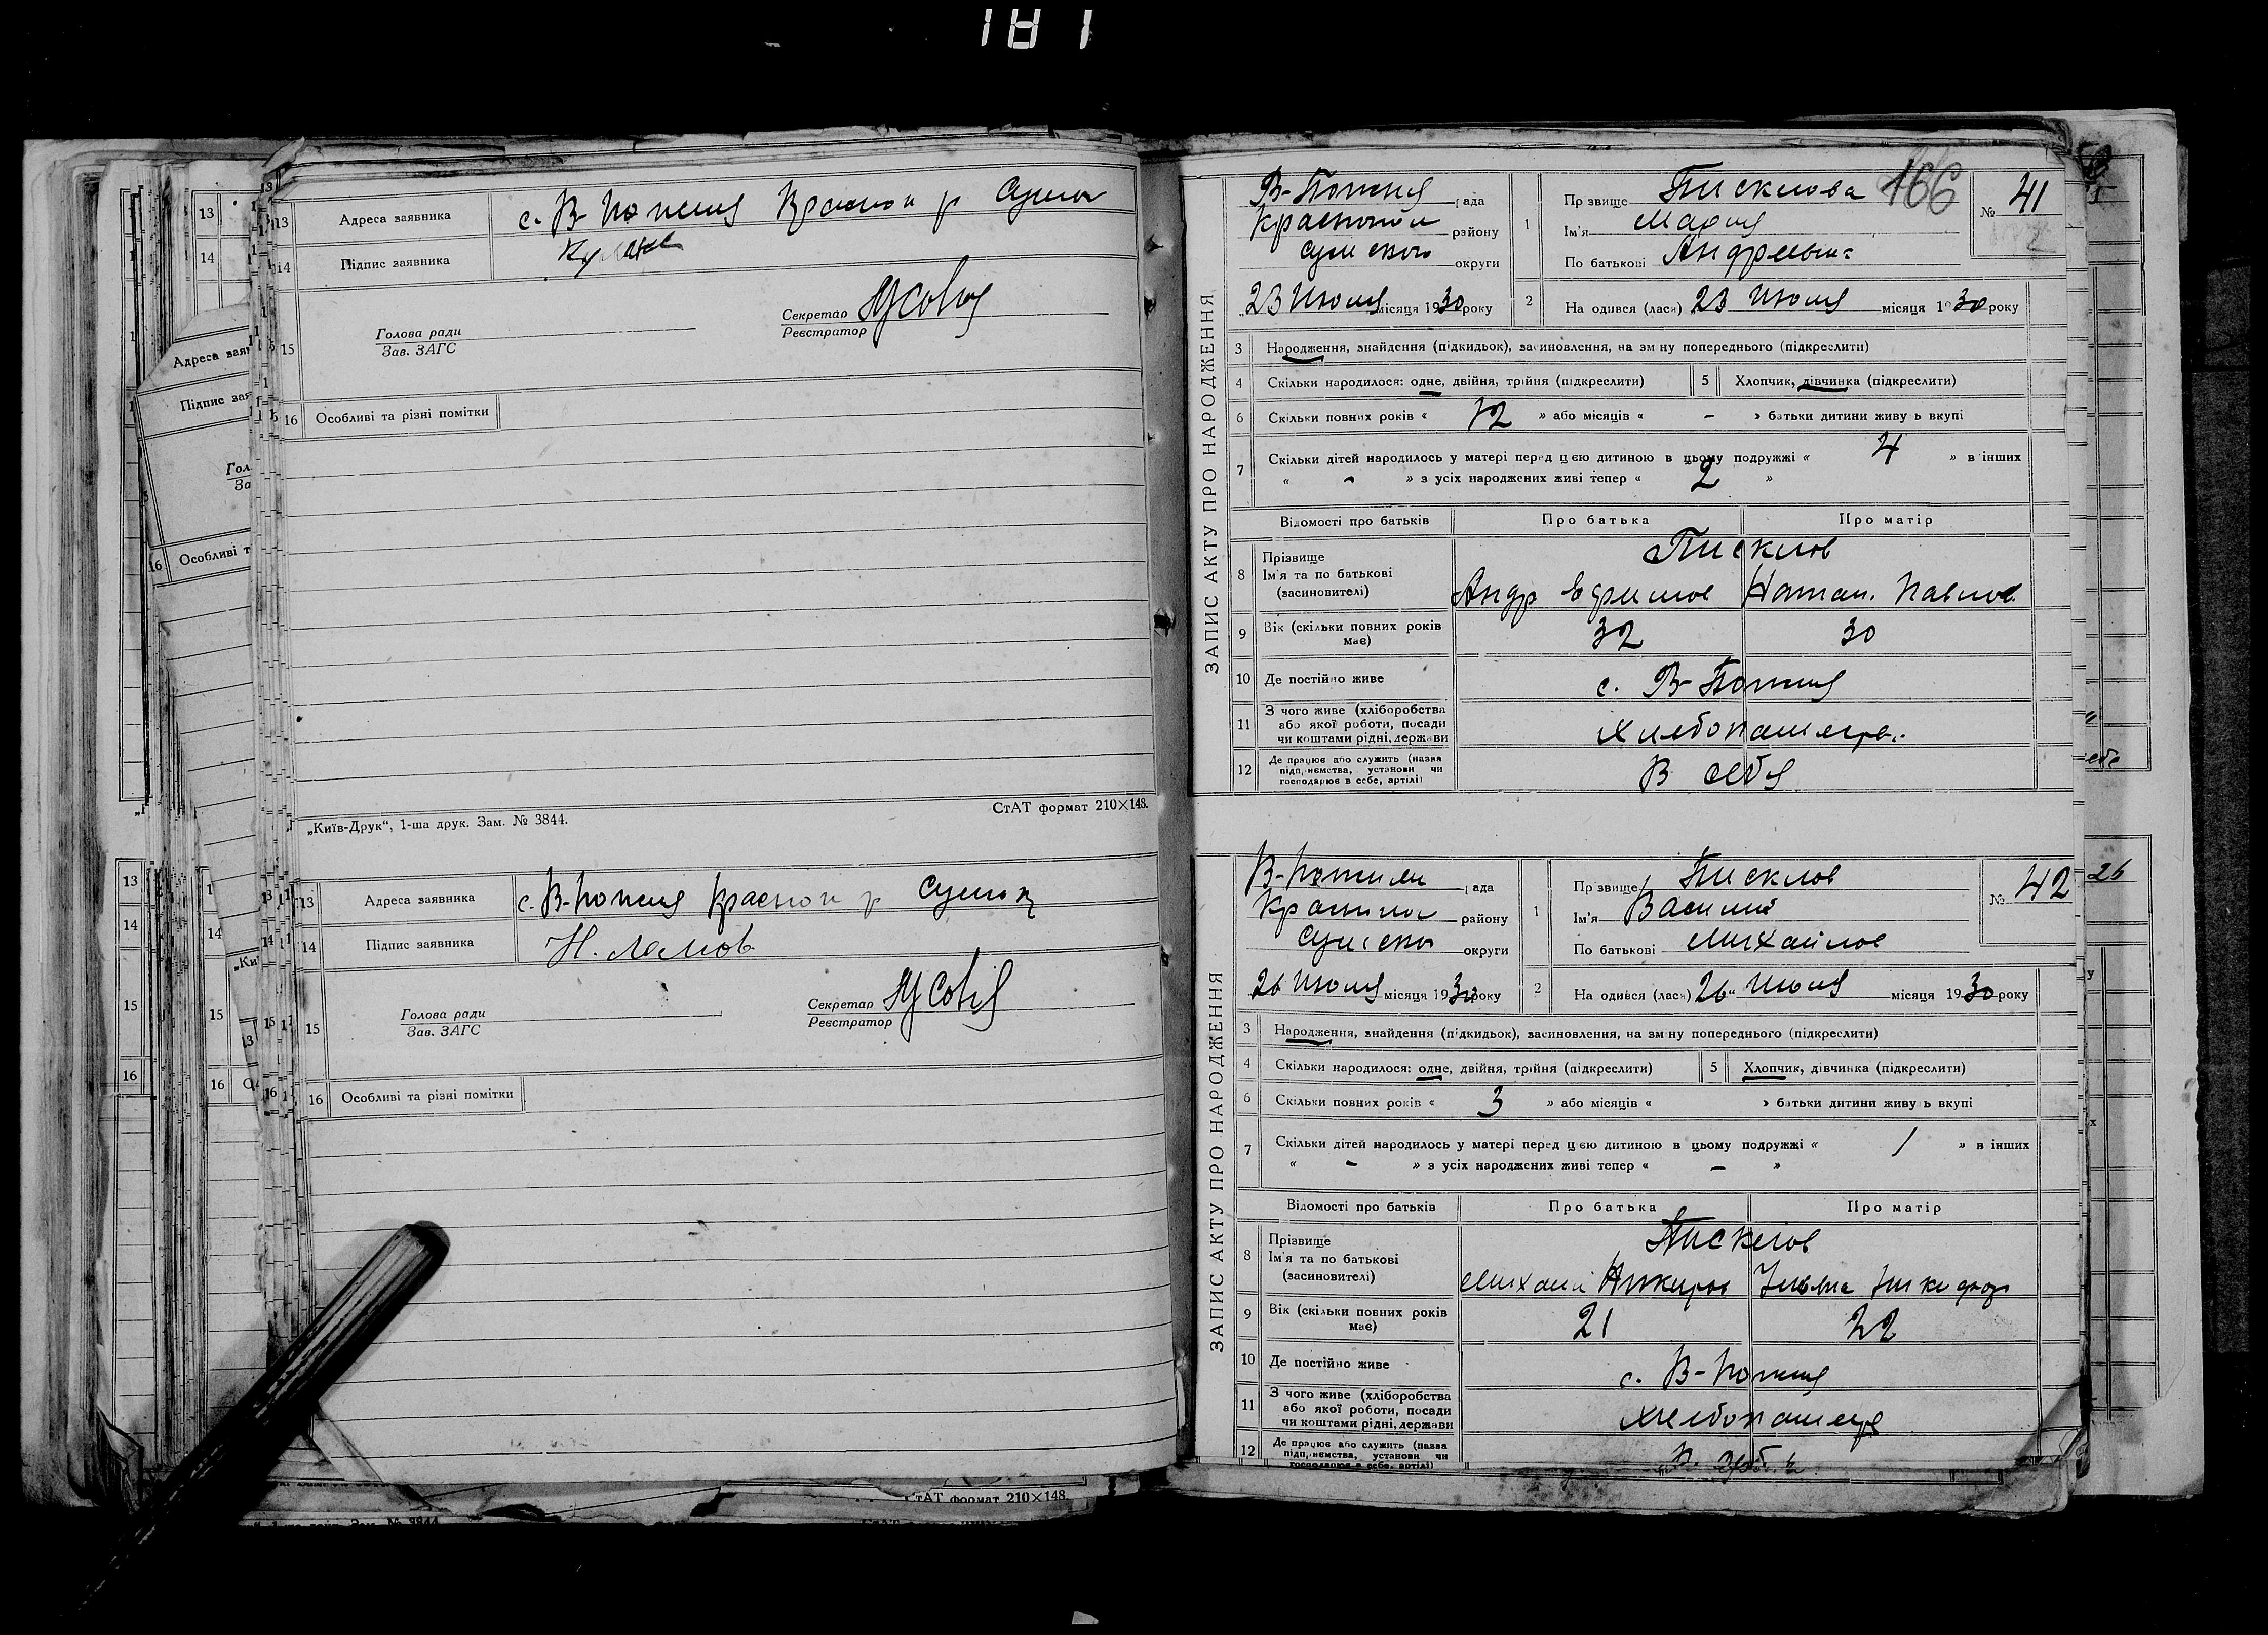 181
13 Адреса заявника с. В-Потня Красноп р Сумск
14 Підпис заявника
15 Голова ради
Зав. ЗАГС
Секретар
Реєстратор
16 Особливі та різні помітки
„Київ-Друк“, 1-ша друк. Зам. № 3844.
СтАТ формат 210×148.
13 Адреса заявника с. В-Потня Красноп р Сумск
14 Підпис заявника
15 Голова ради
Зав. ЗАГС
Секретар
Реєстратор
16 Особливі та різні помітки
166
ЗАПИС АКТУ ПРО НАРОДЖЕННЯ
В-Потня рада
Краснопол району
Сумского округи
23 Июля місяця 1930 року
1 Прізвище Писклова
Ім'я Мария
По батькові Андреевна
№ 41
2 Народився (лась) 23 Июля місяця 1930 року
3 Народження, знайдення (підкидьок), засиновлення, на зміну попереднього (підкреслити)
4 Скільки народилося: одне, двійня, трійня (підкреслити)
5 Хлопчик, дівчинка (підкреслити)
6 Скільки повних років « 12 » або місяців « - » батьки дитини живуть вкупі
7 Скільки дітей народилось у матері перед цією дитиною в цьому подружжі « 4 » в інших
« - » з усіх народжених живі тепер « 2 »
Відомості про батьків Про батька Про матір
8 Прізвище
Ім'я та по батькові
(засиновителі)
Писклов
Андр Ефимов Натал. Павлов
9 Вік (скільки повних років має) 32 30
10 Де постійно живе с. В-Потня
11 З чого живе (хліборобства
або якої роботи, посади
чи коштами рідні, держави
Хлебопашеств.
12 Де працює або служить (назва
підприємства, установи чи
господарює в себе, артілі)
В себя
ЗАПИС АКТУ ПРО НАРОДЖЕННЯ
В-Потня рада
Краснопол району
Сумско округи
26 Июля місяця 1930 року
1 Прізвище Писклов
Ім'я Василий
По батькові Михайлов
№ 42
2 Народився (лась) 26 Июля місяця 1930 року
3 Народження, знайдення (підкидьок), засиновлення, на зміну попереднього (підкреслити)
4 Скільки народилося: одне, двійня, трійня (підкреслити)
5 Хлопчик, дівчинка (підкреслити)
6 Скільки повних років « 3 » або місяців « » батьки дитини живуть вкупі
7 Скільки дітей народилось у матері перед цією дитиною в цьому подружжі « 1 » в інших
« - » з усіх народжених живі тепер « - »
Відомості про батьків Про батька Про матір
8 Прізвище
Ім'я та по батькові
(засиновителі)
Писклов
Михаил
9 Вік (скільки повних років має) 21 22
10 Де постійно живе с. В-Потня
11 З чого живе (хліборобства
або якої роботи, посади
чи коштами рідні, держави
Хлебопашеств
12 Де працює або служить (назва
підприємства, установи чи
господарює в себе, артілі)